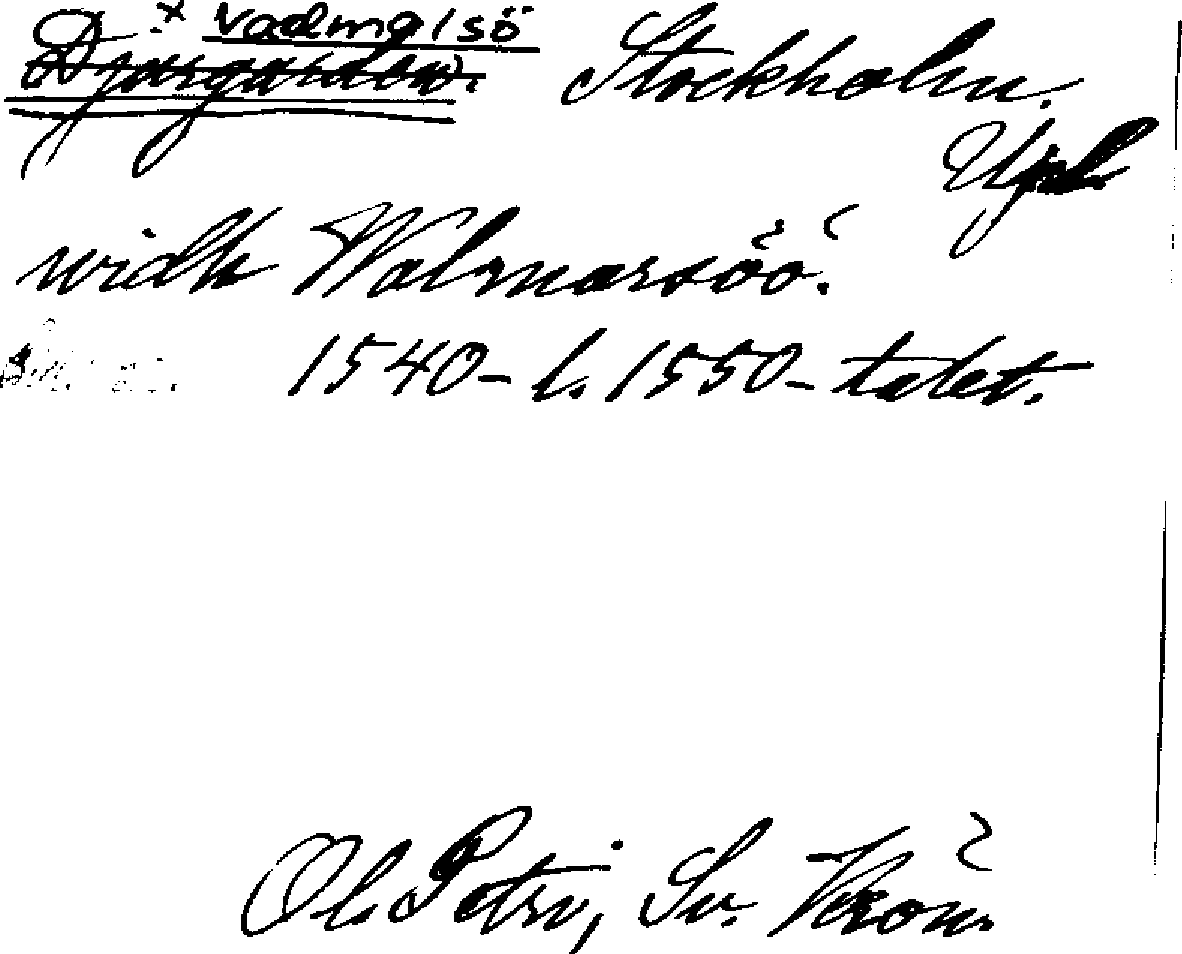 × Vadmalsö
Djurgården. Stockholm.
Upl.
widh Walmarsöö.
1540- l. 1550-talet.
Ol. Petri, Sv. Krön.